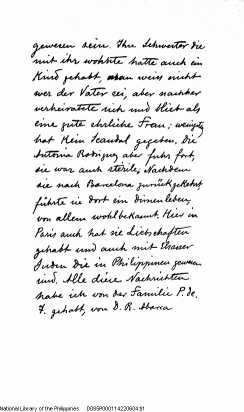 gewesen sein. Ihre Schwester die
mit ihr wohnte hatte auch ein
Kind gehabt, man weiss nicht
wer der Vater sei, aber nachher
verheiratete sich und lebt als
eine gute ehrliche Frau; wenigstens
hat kein Scandal gegeben. Die
Antonia Rodriguez aber fuhr fort,
sie war auch steril. Nachdem
sie nach Barcelona zurückgekehrt
führte sie dort ein Dirnenleben,
von allem wohlbekannt. Hier in
Paris auch hat sie Liebschaften
gehabt und auch mit
Juden die in Philippinen gewesen
sind. Alle diese Nachrichten
habe ich von der Familie P. de.
T. gehabt, von D. R. Abarca
National Library of the Philippines